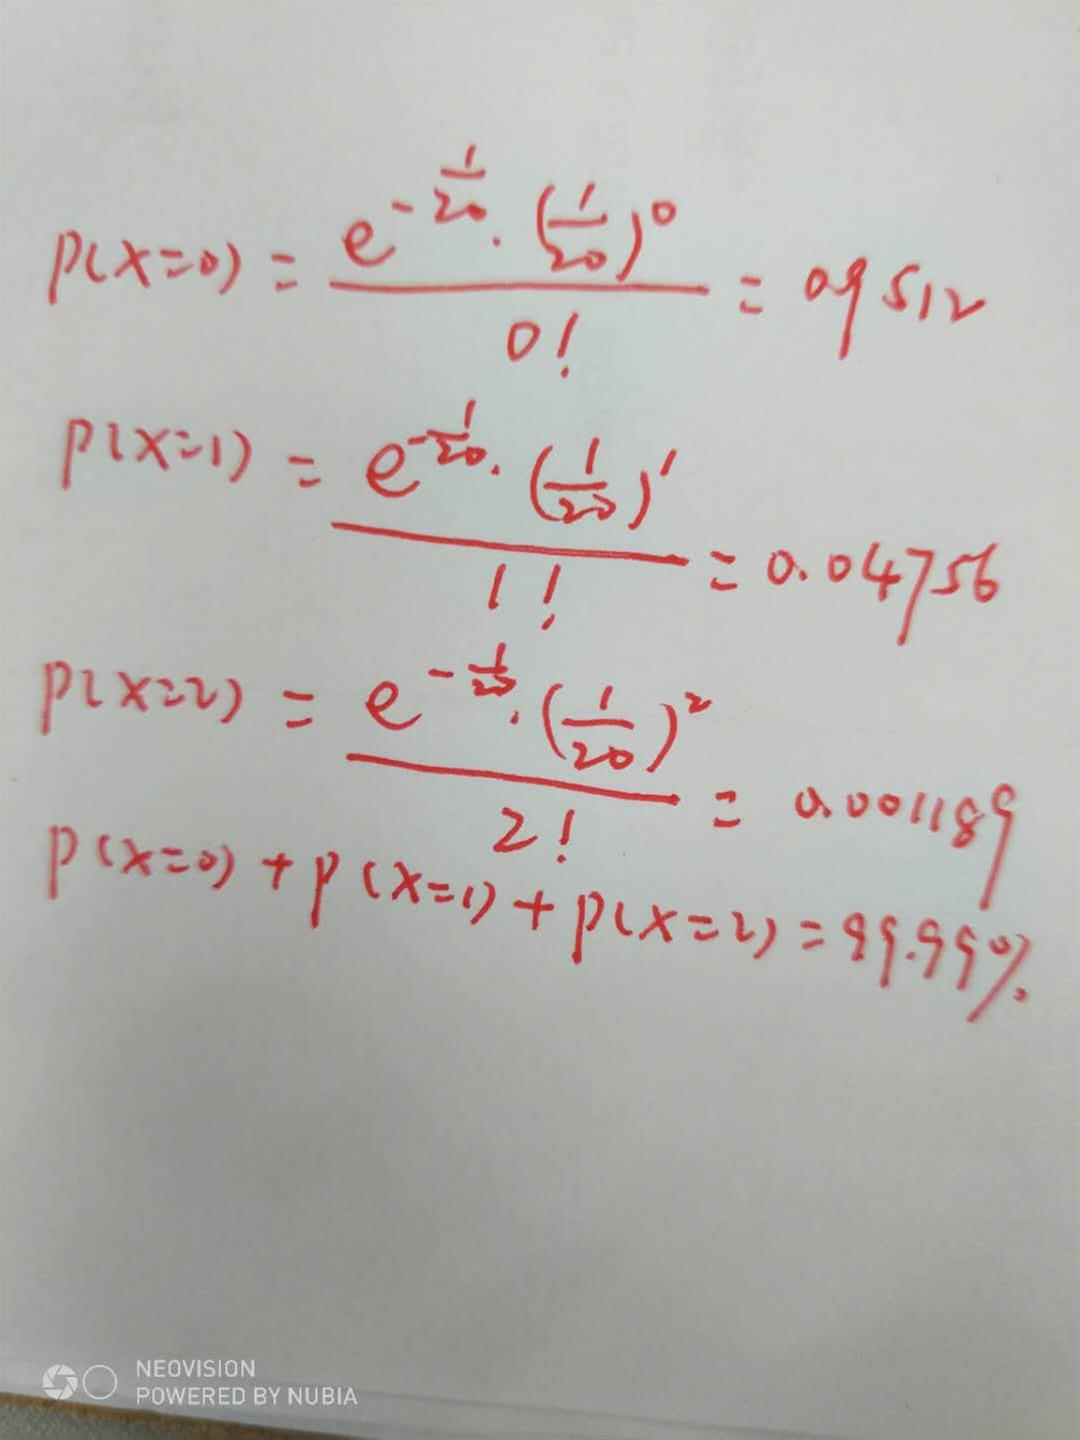 P(X=0) = e^{-1/20} · (1/20)^0 / 0! = 0.9512
P(X=1) = e^{-1/20} · (1/20)^1 / 1! = 0.04756
P(X=2) = e^{-1/20} · (1/20)^2 / 2! = 0.001189
P(X=0) + P(X=1) + P(X=2) = 99.99%
NEOVISION
POWERED BY NUBIA